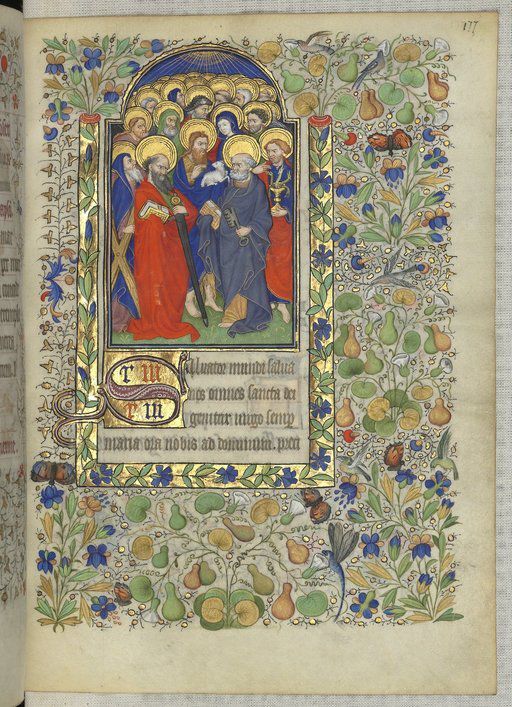 177
Saluator mundi salua
nos omnes sancta dei
genitrix uirgo semp
maria ora nobis ad dominum. preci